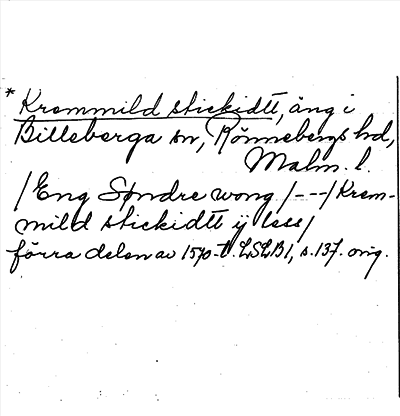 * Krommild stickidtt, äng i
Billeberga sn, Rönnebergs hd,
Malm. l.
/Eng Søndre wong /---/ Krom-
mild stickidtt ij less/
förra delen av 1570-t. LSLB1, s. 137. orig.